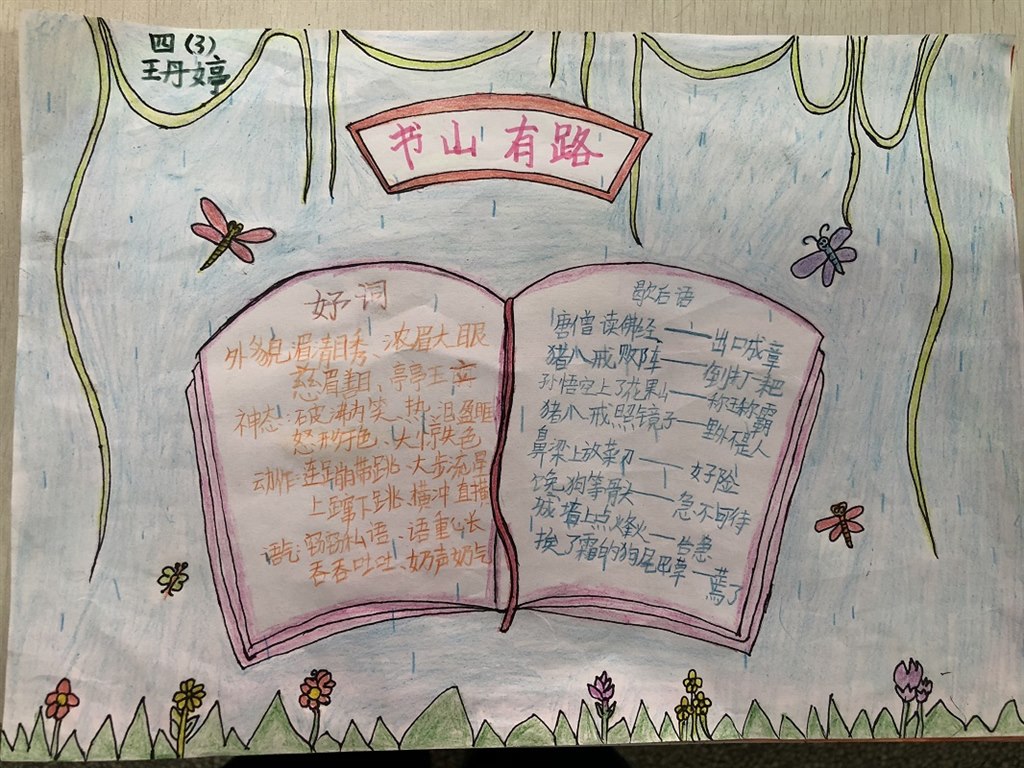 四(3)
王丹婷
书山有路
好词
外貌:眉清目秀、浓眉大眼
慈眉善目、亭亭玉立
神态:破涕为笑、热泪盈眶
怒形于色、大惊失色
动作:连蹦带跳、大步流星
上蹿下跳、横冲直撞
语气:窃窃私语、语重心长
吞吞吐吐、奶声奶气
歇后语
唐僧读佛经——出口成章
猪八戒败阵——倒打一耙
孙悟空上了花果山——称王称霸
猪八戒照镜子——里外不是人
鼻梁上放菜刀——好险
馋狗等骨头——急不可待
城墙上点烽火——告急
挨了霜的狗尾巴草——蔫了